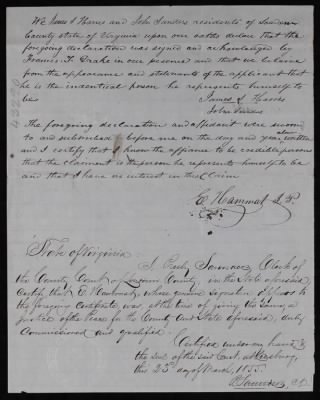 We James S Harris and John Sanders residents of
County State of Virginia upon our oaths declare that the
foregoing declaration was signed and acknowledged by
Francis T. Drake in our presence and that we believe
from the appearance and statements of the applicant that
he is the indentical person he represents himself to
be
James S Harris
John Sanders
The foregoing declaration and affidavit were sworn
to and subscribed before me on the day and year above written
and I certify that I know the affiants to be credible persons
that the claimant is the person he represents himself to be
and that I have no interest in this Claim
E. Hammat J.P.
State of Virginia
I Clerk of
the County Court of County, in the State aforesaid
Certify that E. Hammat, whose genuine signature appears to
the foregoing Certificate, was at the time of giving the same, a
justice of the Peace for the County and State aforesaid, duly
Commissioned and qualified.
Certified under my hand &
the seal of the said Court, at
the 23d day of March, 1855.